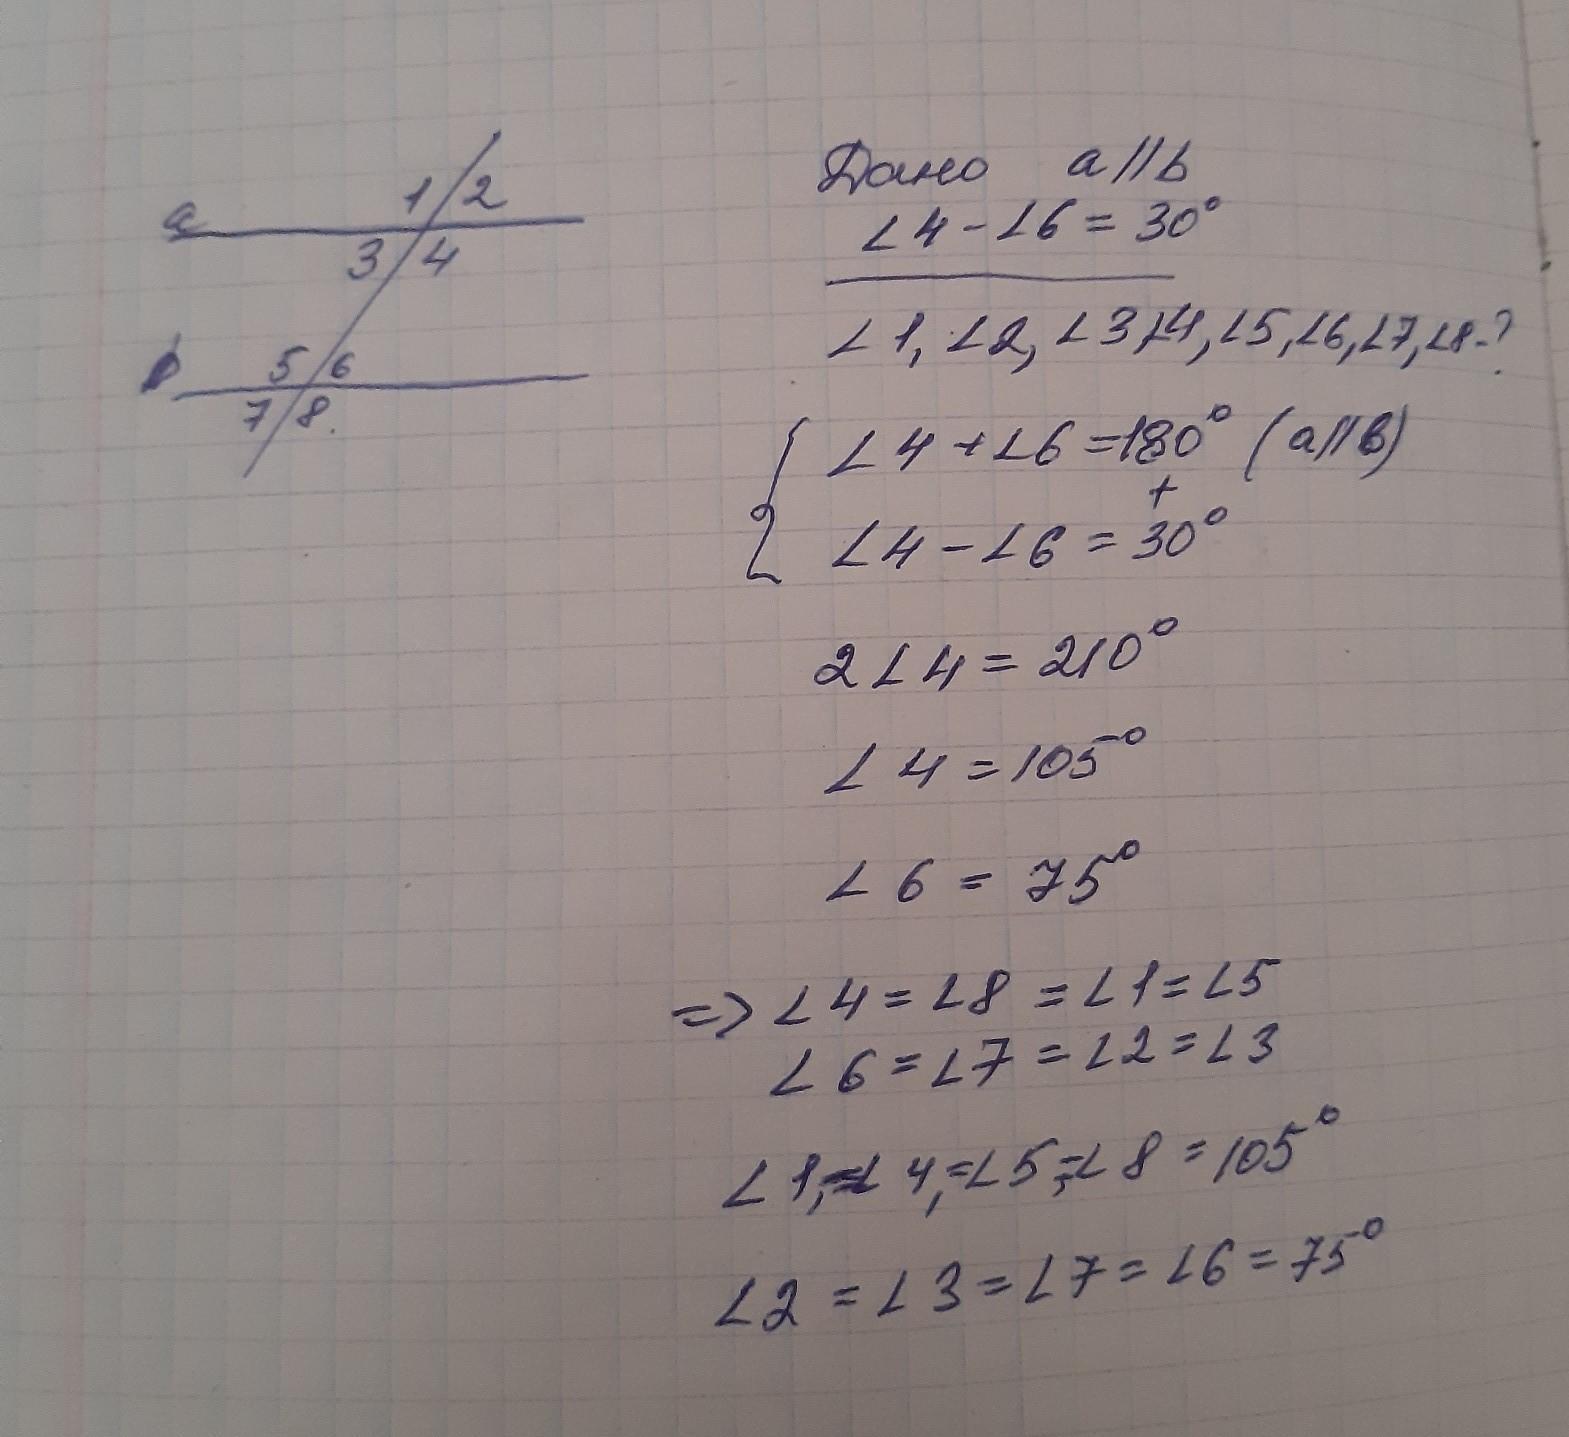 1 2
a
3 4
b
5 6
7 8.
Дано a∥b
∠4 - ∠6 = 30°
∠1, ∠2, ∠3, ∠4, ∠5, ∠6, ∠7, ∠8 - ?
∠4 + ∠6 = 180° (a∥b)
+
∠4 - ∠6 = 30°
2∠4 = 210°
∠4 = 105°
∠6 = 75°
=> ∠4 = ∠8 = ∠1 = ∠5
∠6 = ∠7 = ∠2 = ∠3
∠1, = ∠4, = ∠5, = ∠8 = 105°
∠2 = ∠3 = ∠7 = ∠6 = 75°